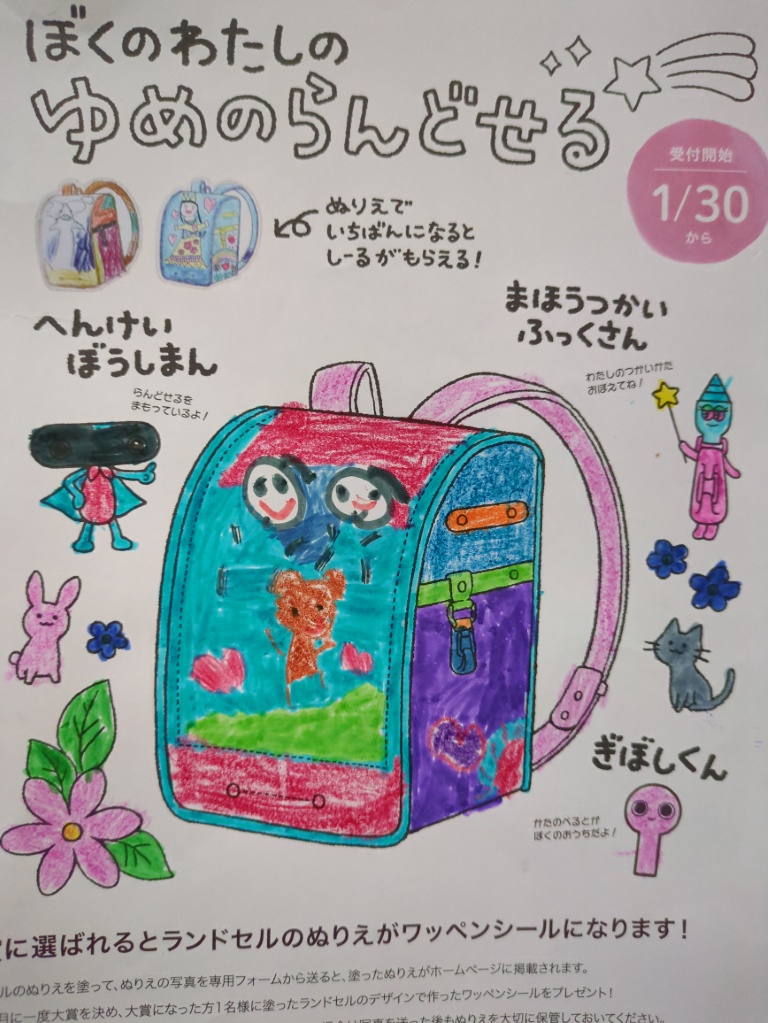 ぼくのわたしの
ゆめのらんどせる
受付開始
1/30
から
ぬりえで
いちばんになると
しーるがもらえる!
へんけい
ぼうしまん
らんどせるを
まもっているよ!
まほうつかい
ふっくさん
わたしのつかいかた
おぼえてね!
ぎぼしくん
かたのべるとが
ぼくのおうちだよ!
に選ばれるとランドセルのぬりえがワッペンシールになります!
ルのぬりえを塗って、ぬりえの写真を専用フォームから送ると、塗ったぬりえがホームページに掲載されます。
月に一度大賞を決め、大賞になった方1名様に塗ったランドセルのデザインで作ったワッペンシールをプレゼント!
写真を送った後もぬりえを大切に保管しておいてください。